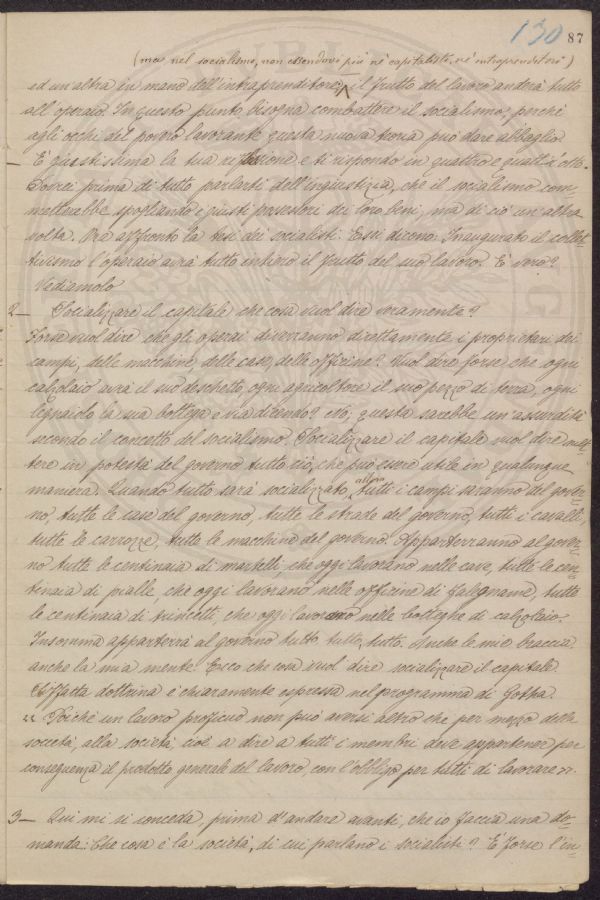 130 87
(ma nel socialismo, non essendovi più nè capitalisti, nè intraprenditori)
ed un'altra in mano dell'intraprenditore, il frutto del lavoro andrà tutto
all'operaio. In questo punto bisogna combattere il socialismo, perchè
agli occhi del povero lavorante questa nuova teoria può dare abbaglio.
— È giustissima la tua riflessione e ti rispondo in quattro e quattr'otto.
Dovrei prima di tutto parlarti dell'ingiustizia, che il socialismo com-
metterebbe spogliando i giusti possessori dei loro beni, ma di ciò un'altra
volta. Ora affronto la tesi dei socialisti. Essi dicono: Inaugurato il collet-
tivismo l'operaio avrà tutto intiero il frutto del suo lavoro. È vero?
Vediamolo
2— Socializzare il capitale che cosa vuol dire veramente?
Forse vuol dire che gli operai diverranno direttamente i proprietari dei
campi, delle macchine, delle case, delle officine? Vuol dire forse che ogni
calzolaio avrà il suo deschetto, ogni agricoltore il suo pezzo di terra, ogni
legnaiolo la sua bottega e via dicendo? No, questa sarebbe un'assurdità
secondo il concetto del socialismo. Socializzare il capitale vuol dire met-
tere in potestà del governo tutto ciò, che può essere utile in qualunque
maniera. Quando tutto sarà socializzato, allora tutti i campi saranno del gover-
no, tutte le case del governo, tutte le strade del governo, tutti i cavalli,
tutte le carrozze, tutte le macchine del governo. Apparterranno al gover-
no tutte le centinaia di martelli, che oggi lavorano nelle cave, tutte le cen-
tinaia di pialle, che oggi lavorano nelle officine di falegname, tutte
le centinaia di trincetti, che oggi lavorano nelle botteghe di calzolaio.
Insomma apparterrà al governo tutto, tutto, tutto. Anche le mie braccia,
anche la mia mente. Ecco che cosa vuol dire socializzare il capitale.
Siffatta dottrina è chiaramente espressa nel programma di Gotha.
« Poichè un lavoro proficuo non può aversi altro che per mezzo della
società, alla società, cioè a dire a tutti i membri deve appartenere per
conseguenza il prodotto generale del lavoro, con l'obbligo per tutti di lavorare ».
3— Qui mi si conceda, prima d'andare avanti, che io faccia una do-
manda: Che cosa è la società, di cui parlano i socialisti? È forse l'in-